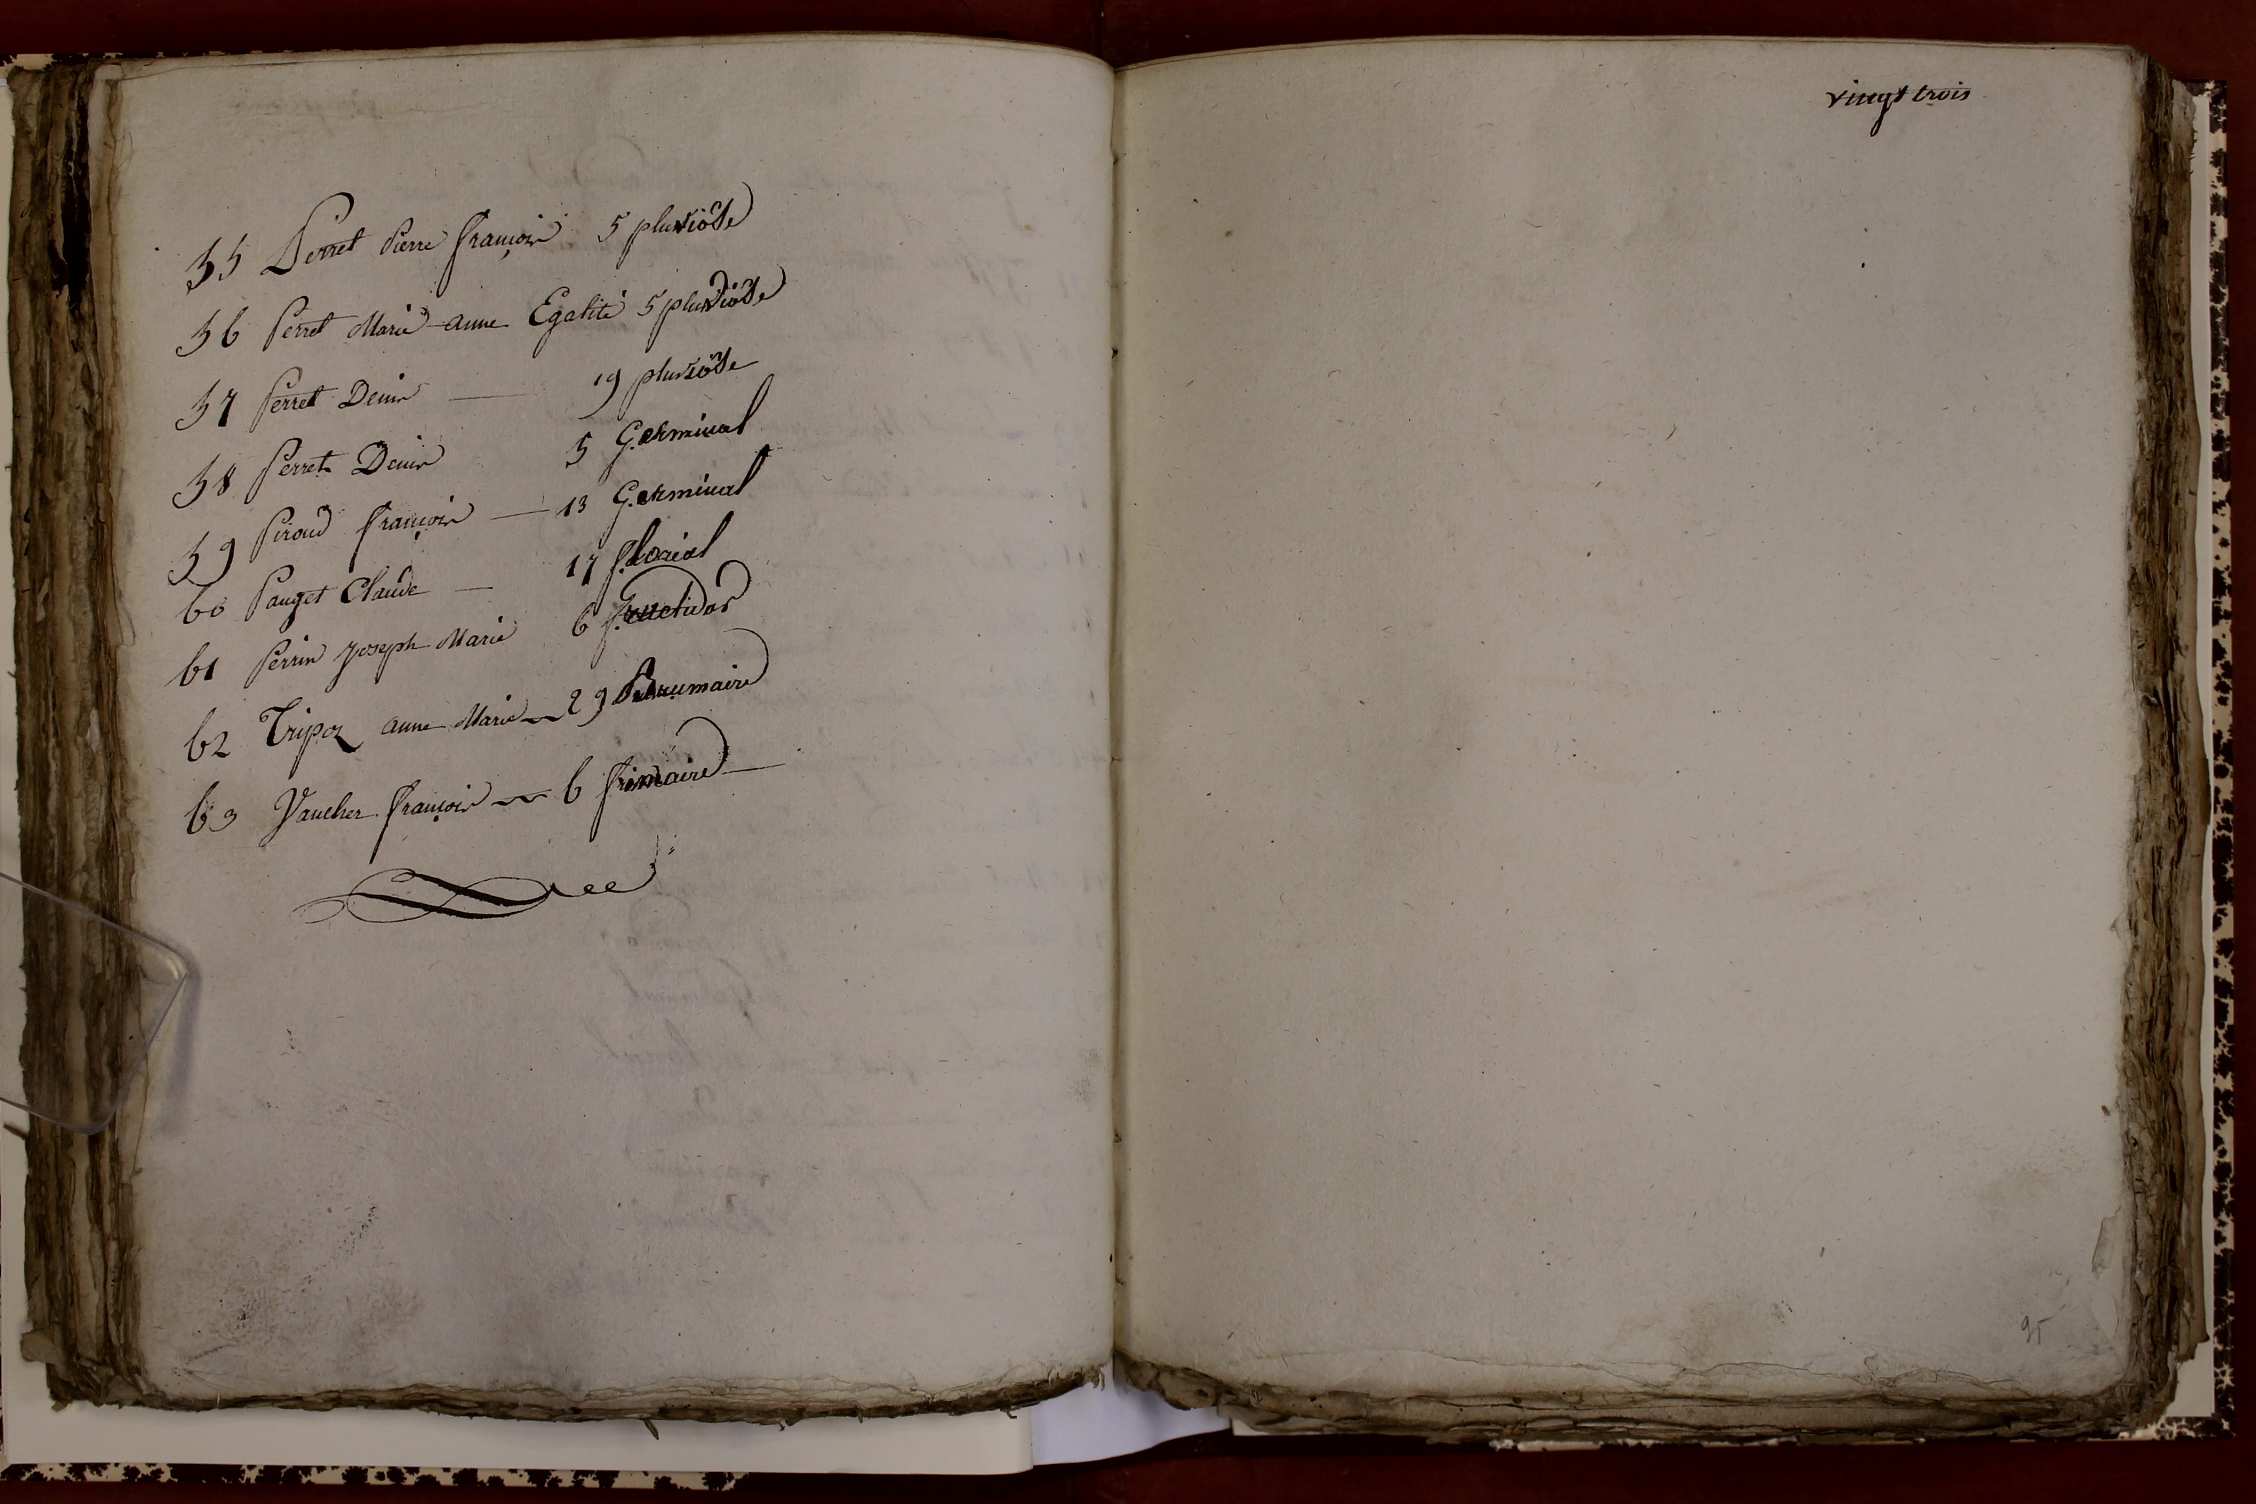 55 Perret Pierre françois 5 pluviôse
56 Perret Marie anne Egalité 5 pluviôse
57 Perret Denis 19 pluviôse
58 Perret Denis 5 Germinal
59 Piroud françois 13 Germinal
60 Pauget Claude 17 floréal
61 Perrin Joseph Marie 6 fructidor
62 Tripoz anne Marie 29 Brumaire
63 Vaucher françois 6 frimaire
vingt trois
95